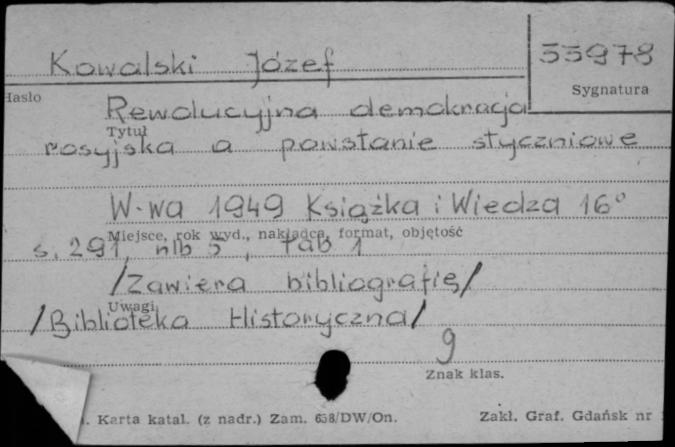 Kowalski Józef
55978
Sygnatura
Hasło
Rewolucyjna demokracja
Tytuł
rosyjska a powstanie styczniowe
W-wa 1949 Książka i Wiedza 16°
Miejsce, rok wyd., nakładca, format, objętość
s. 291, nlb 5, tab 1
/Zawiera bibliografię/
Uwagi
/Biblioteka Historyczna/
9
Znak klas.
. Karta katal. (z nadr.) Zam. 658/DW/On. Zakł. Graf. Gdańsk nr